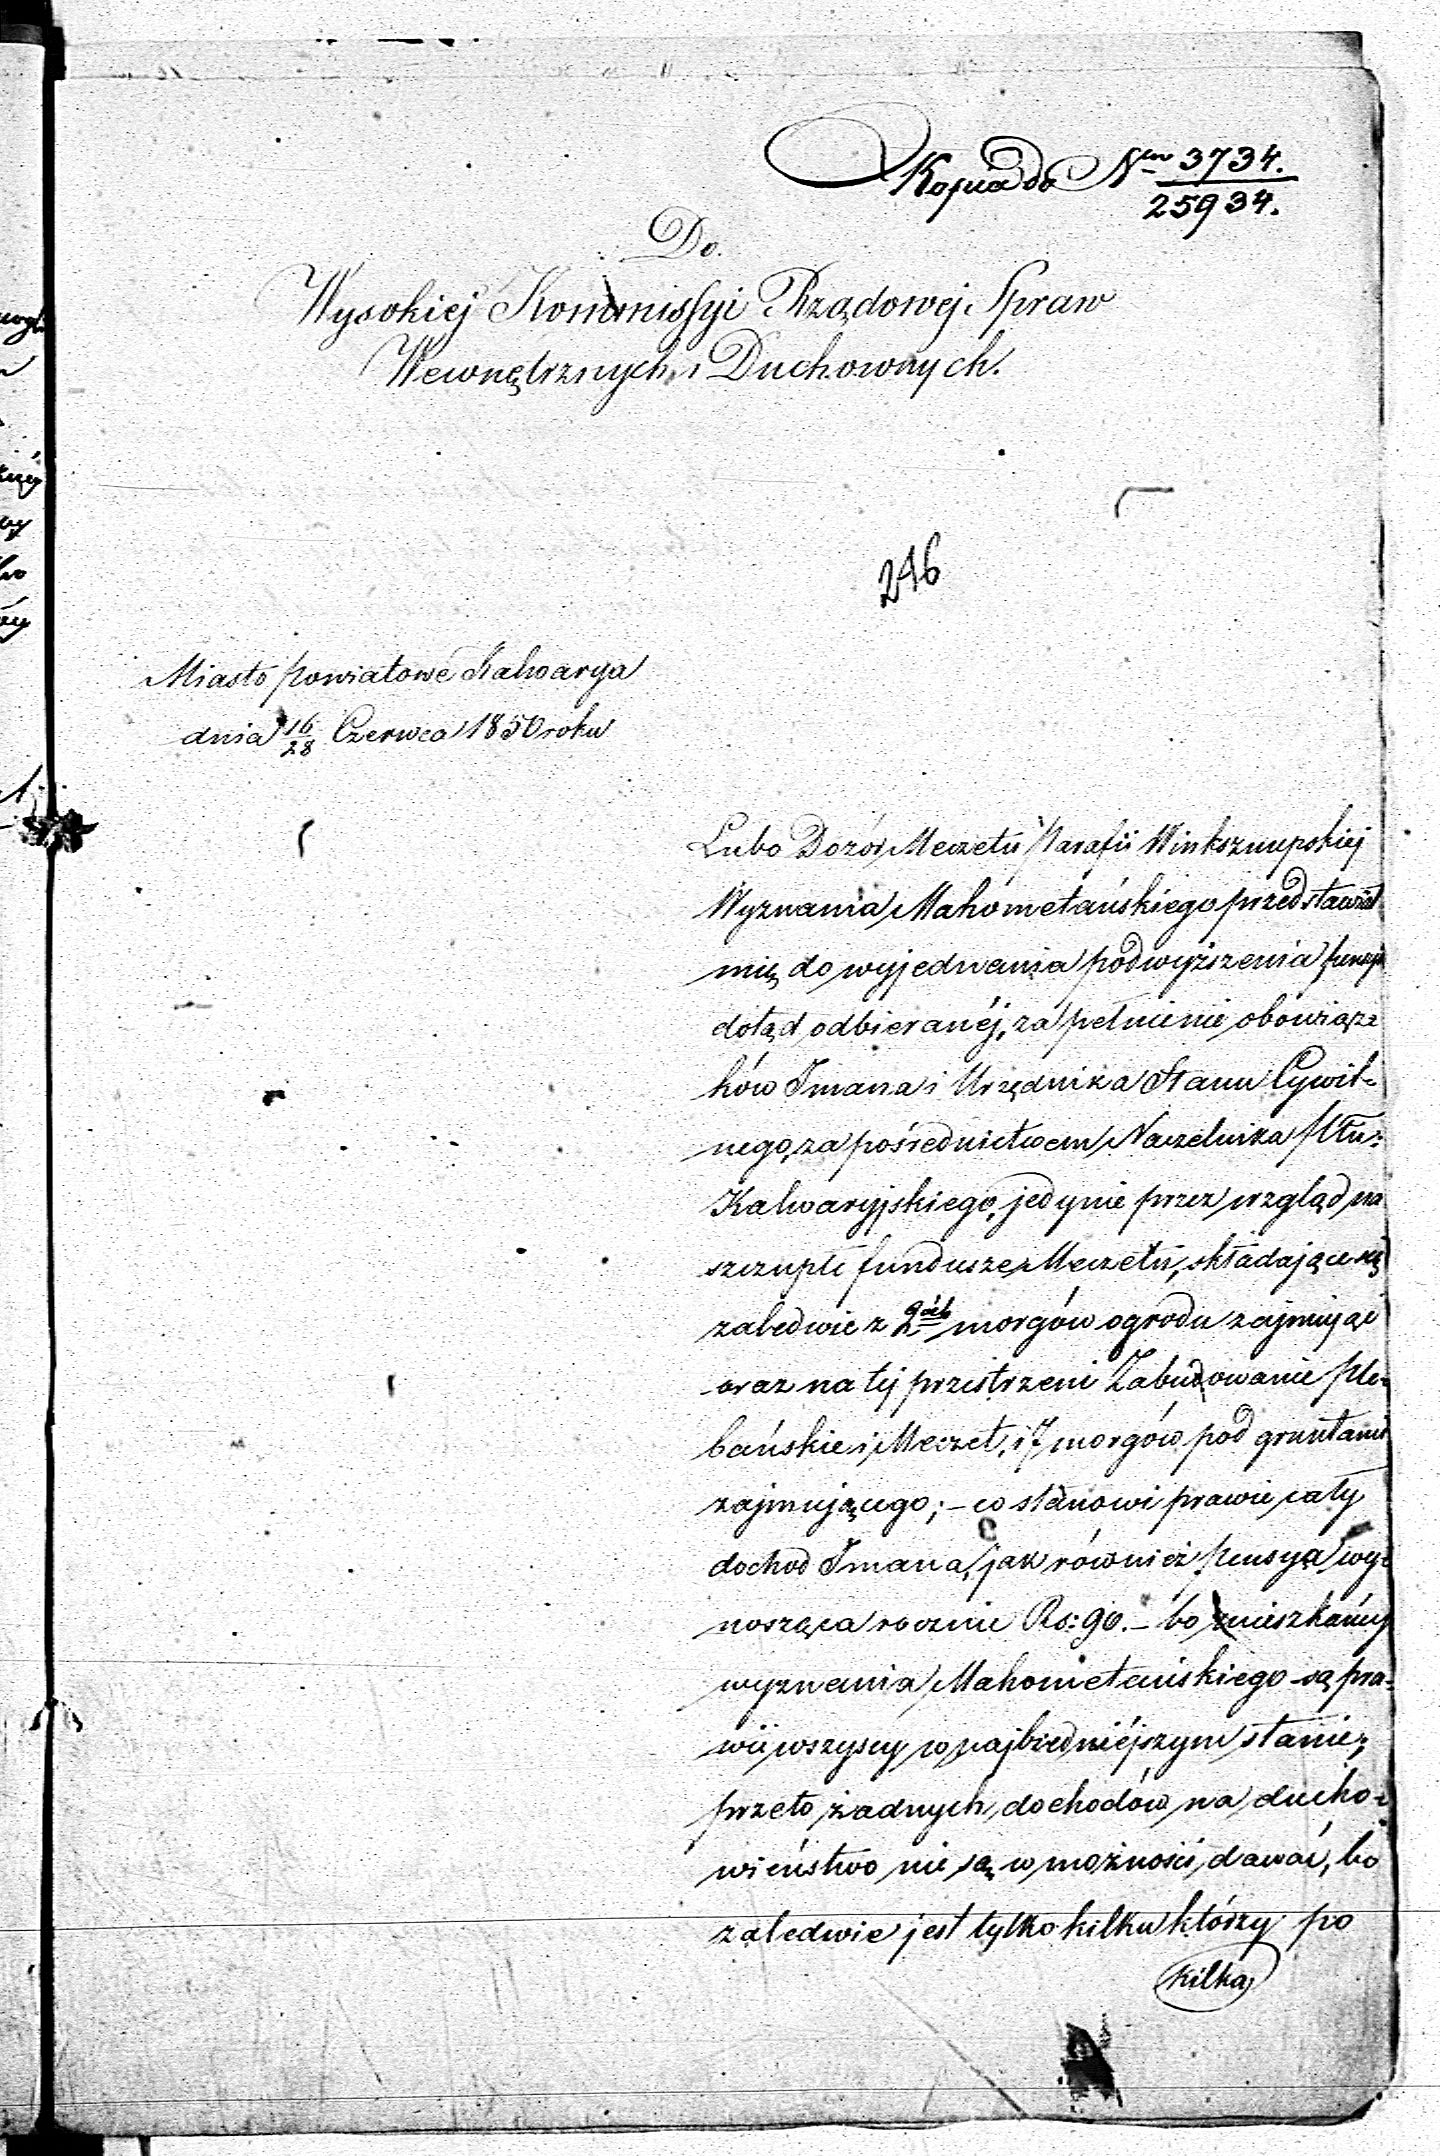 Kopia do Nru 3734.
25934.
Do
Wysokiej Kommissyi Rządowej Spraw
Wewnętrznych i Duchownych.
246
Miasto powiatowe Kalwarya
dnia 16/28 Czerwca 1850 roku
Lubo Dozór Meczetu Parafii Winksznupskiej
Wyznania Mahometańskiego przedstawiał
mię do wyjednania podwyższenia
dotąd odbieranéj, za pełnienie obowiąz=
ków Imana i Urzędnika Stanu Cywil=
nego, za pośrednictwem Naczelnika Ptu:
Kalwaryjskiego, jedynie przez wzgląd na
szczupłe fundusze Meczetu, składające się
zaledwie z 2ch morgów ogrodu zajmując
oraz na tej przestrzeni Zabudowanie Ple=
bańskie i Meczet, i 7 morgów pod gruntami
zajmującego; – co stanowi prawie cały
dochod Imana, jak również pensya wy=
nosząca rocznie Rs: 90. – bo mieszkańcy
wyznania Mahometańskiego są pra=
wie wszyscy w najbiedniéjszym stanie,
przeto żadnych dochodów na ducho=
wieństwo nie są w możności dawać, bo
zaledwie jest tylko kilku którzy po
kilka